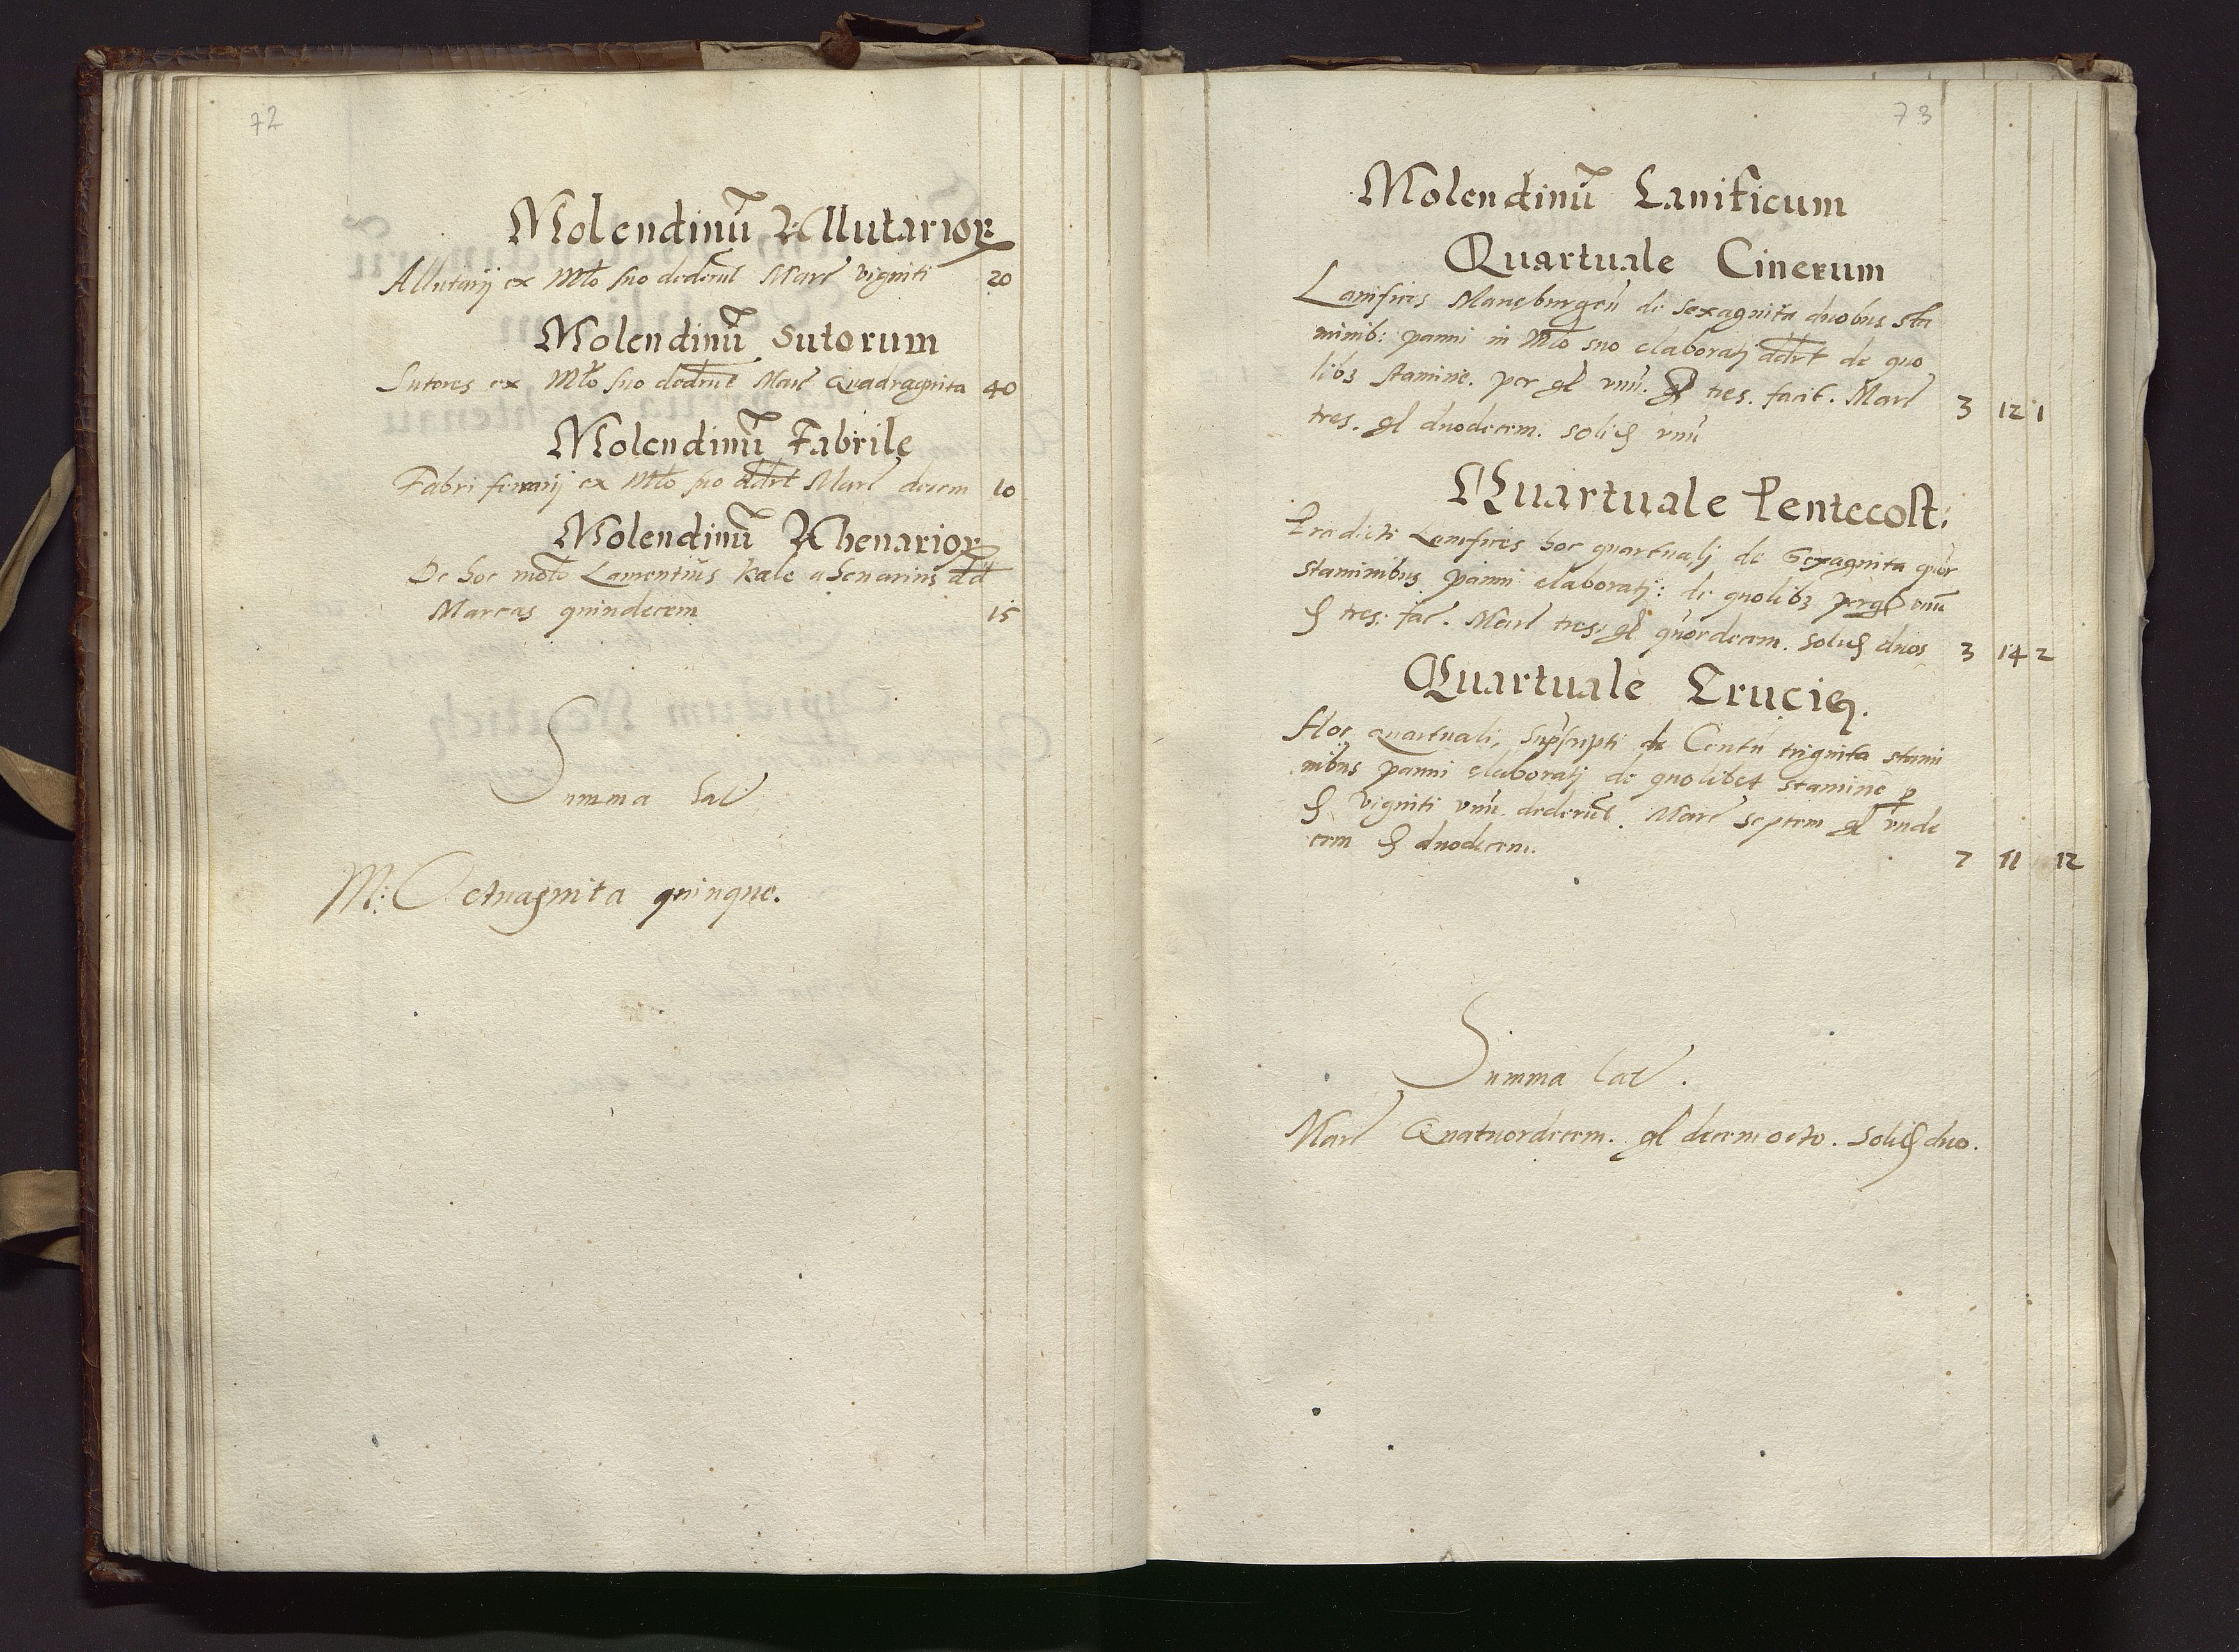 72
Molendinū Allutarioꝝ
Allutarij ex Mlō suo dederūt Marc vigniti 20
Molendinū Sutorum
Sutores ex Mlō suo dedrūt Marc Quadragnita 40
Molendinū Fabrile
Fabri ferrarij ex Mlō suo ddrt Marc decem 10
Molendinū Ahenarioꝝ
De hoc molō Lamentius Kale ahenarius dd
Marcas quindecem 15
Summa lat
M: Octuagnita quinque.
73
Molendinū Lanificum
Quartuale Cinerum
Lanifices Marięburgeñ de sexagnita duobus sta
minib: panni in Mlō suo elaboratj ddrt de quo
libꝫ stamine. per gl vnū. ꝯ tres. facit. Marc
tres. gl duodecem. soliꝯ vnū 3 12 1
Quartuale Pentecost:
Pradicti Lanifices hoc quartualj de Sexagnita quor
staminibus panni elaboratj: de quolibꝫ per gl vnū
ꝯ tres: fac. Marc tres: gl quordecem. soliꝯ duos 3 14 2
Quartuale Crucis.
Hoc quartuali, supscripti de Centū trignita stami
nibus panni elaboratj de quolibet stamine p
ꝯ vigniti vnū. dederūt. Marc septem gl vnde
cem ꝯ duodecem. 7 11 12
Summa lat.
Marc Quatuordecem. gl decem octo. soliꝯ duo.